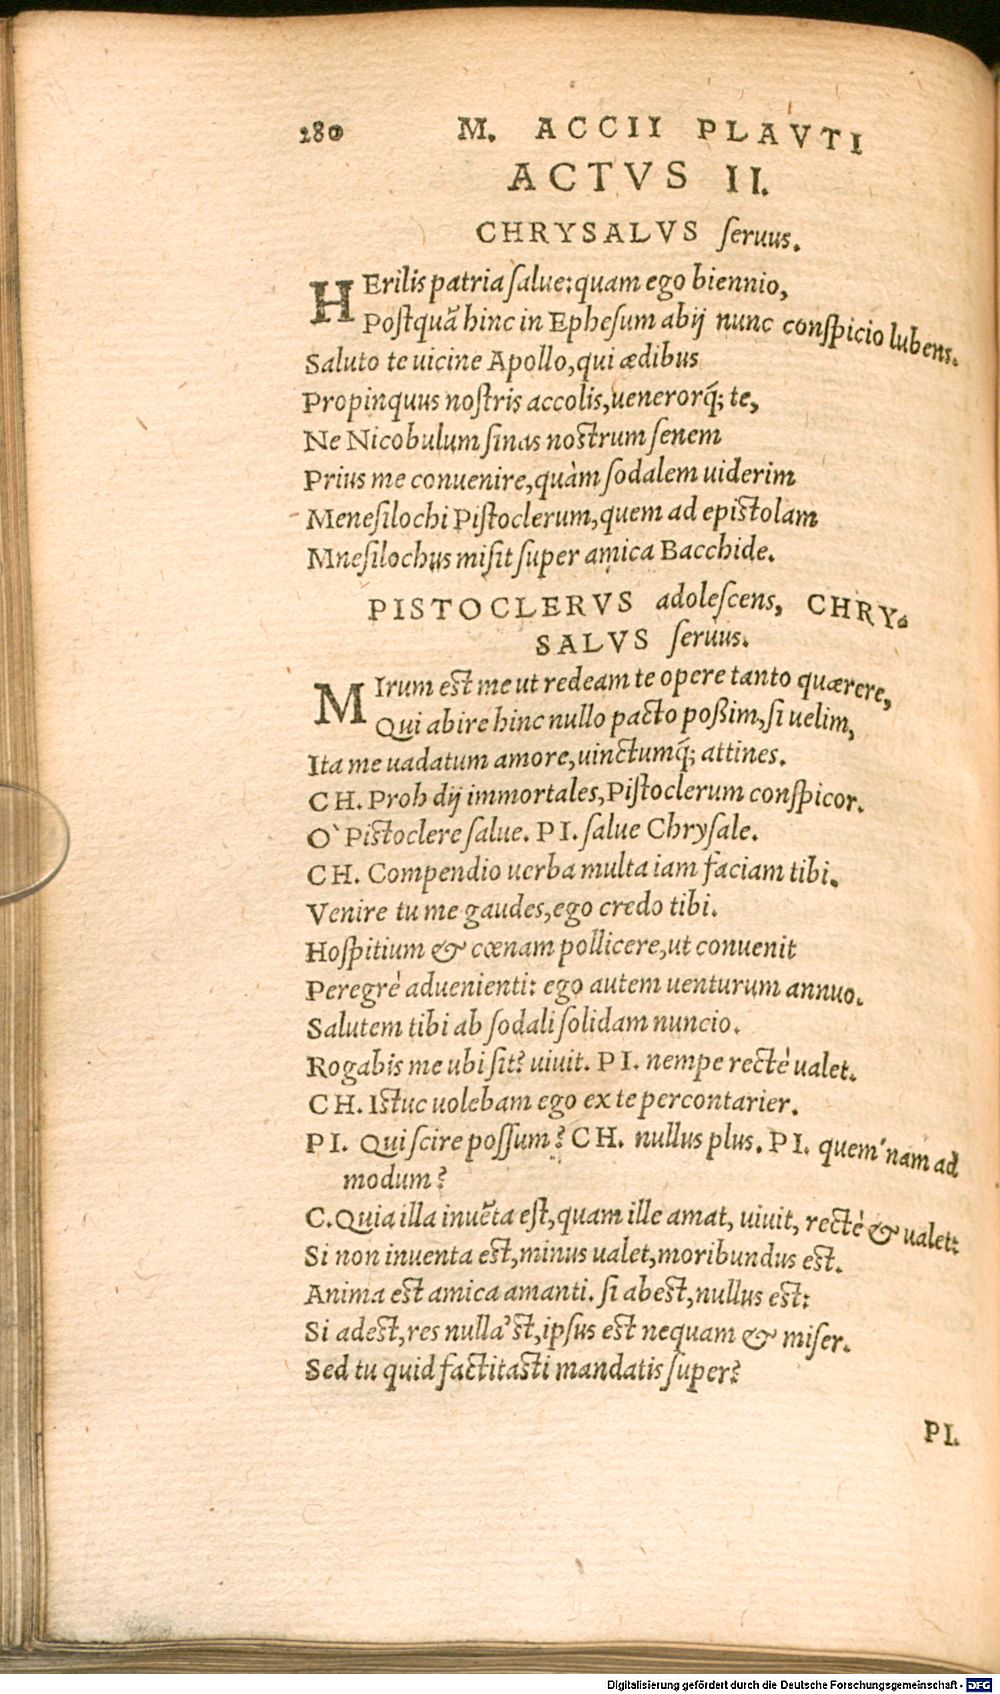 280 M. ACCII PLAVTI
ACTVS II.
CHRYSALVS seruus.
HErilis patria salue: quam ego biennio,
Postquã hinc in Ephesum abij nunc conspicio lubens.
Saluto te uicine Apollo, qui ædibus
Propinquus nostris accolis, uenerorq́; te,
Ne Nicobulum sinas nostrum senem
Prius me conuenire, quàm sodalem uiderim
Menesilochi Pistoclerum, quem ad epistolam
Mnesilochus misit super amica Bacchide.
PISTOCLERVS adolescens, CHRY-
SALVS seruus.
MIrum est me ut redeam te opere tanto quærere,
Qui abire hinc nullo pacto poßim, si uelim,
Ita me uadatum amore, uinctumq́; attines.
CH. Proh dij immortales, Pistoclerum conspicor.
O` Pistoclere salue. PI. salue Chrysale.
CH. Compendio uerba multa iam faciam tibi.
Venire tu me gaudes, ego credo tibi.
Hospitium & cœnam pollicere, ut conuenit
Peregrè aduenienti: ego autem uenturum annuo.
Salutem tibi ab sodali solidam nuncio.
Rogabis me ubi sit? uiuit. PI. nempe rectè ualet.
CH. Istuc uolebam ego ex te percontarier.
PI. Qui scire possum? CH. nullus plus. PI. quem'nam ad
modum?
C. Quia illa inuẽta est, quam ille amat, uiuit, rectè & ualet:
Si non inuenta est, minus ualet, moribundus est.
Anima est amica amanti. si abest, nullus est:
Si adest, res nulla'st, ipsus est nequam & miser.
Sed tu quid factitasti mandatis super?
PI.
Digitalisierung gefördert durch die Deutsche Forschungsgemeinschaft - DFG